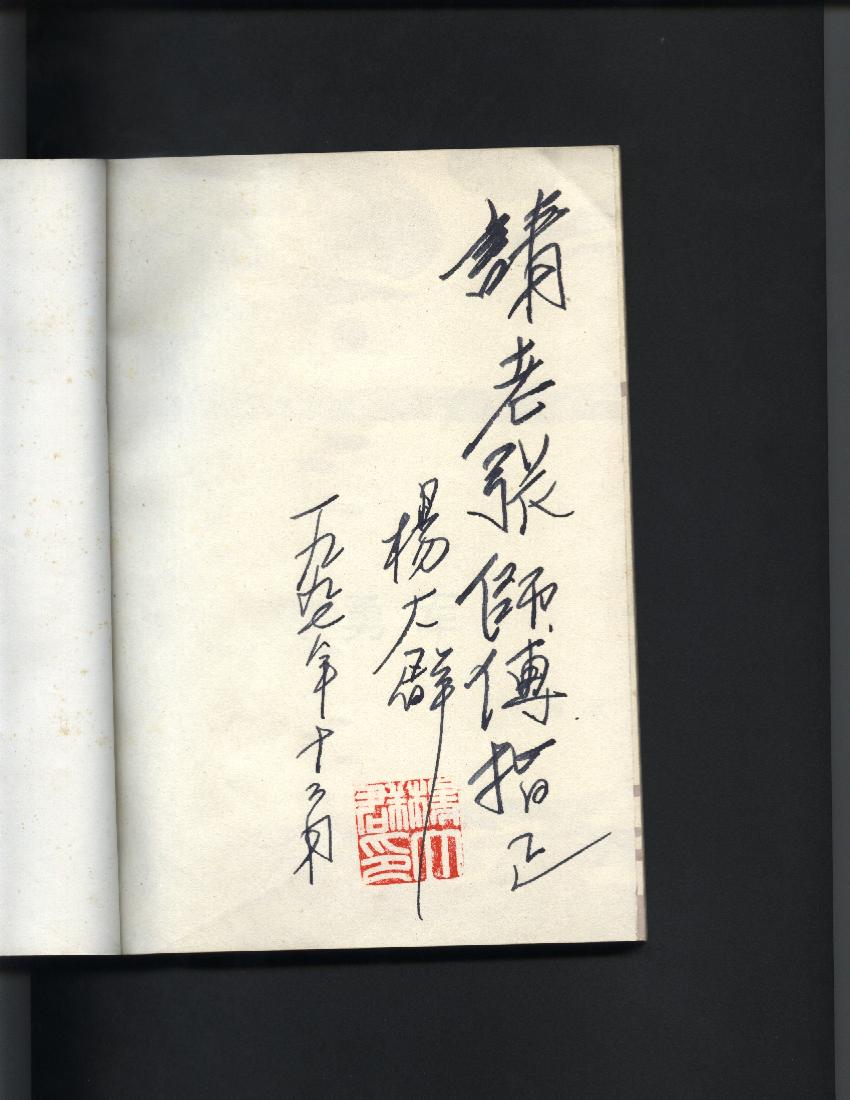 請老張師傅指正
楊大群
一九九七年十二月
楊大群印